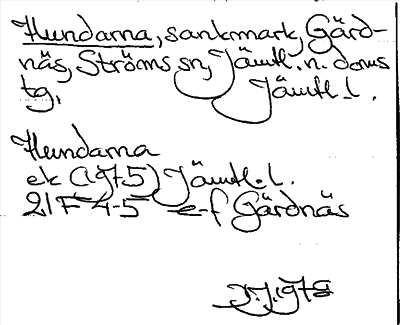 Hundarna, sankmark, Gärd-
näs, Ströms sn, Jämtl. n. doms
tg. Jämtl. l.
Hundarna
ek (1975) Jämtl. l.
21F 4-5 e-f Gärdnäs
1978